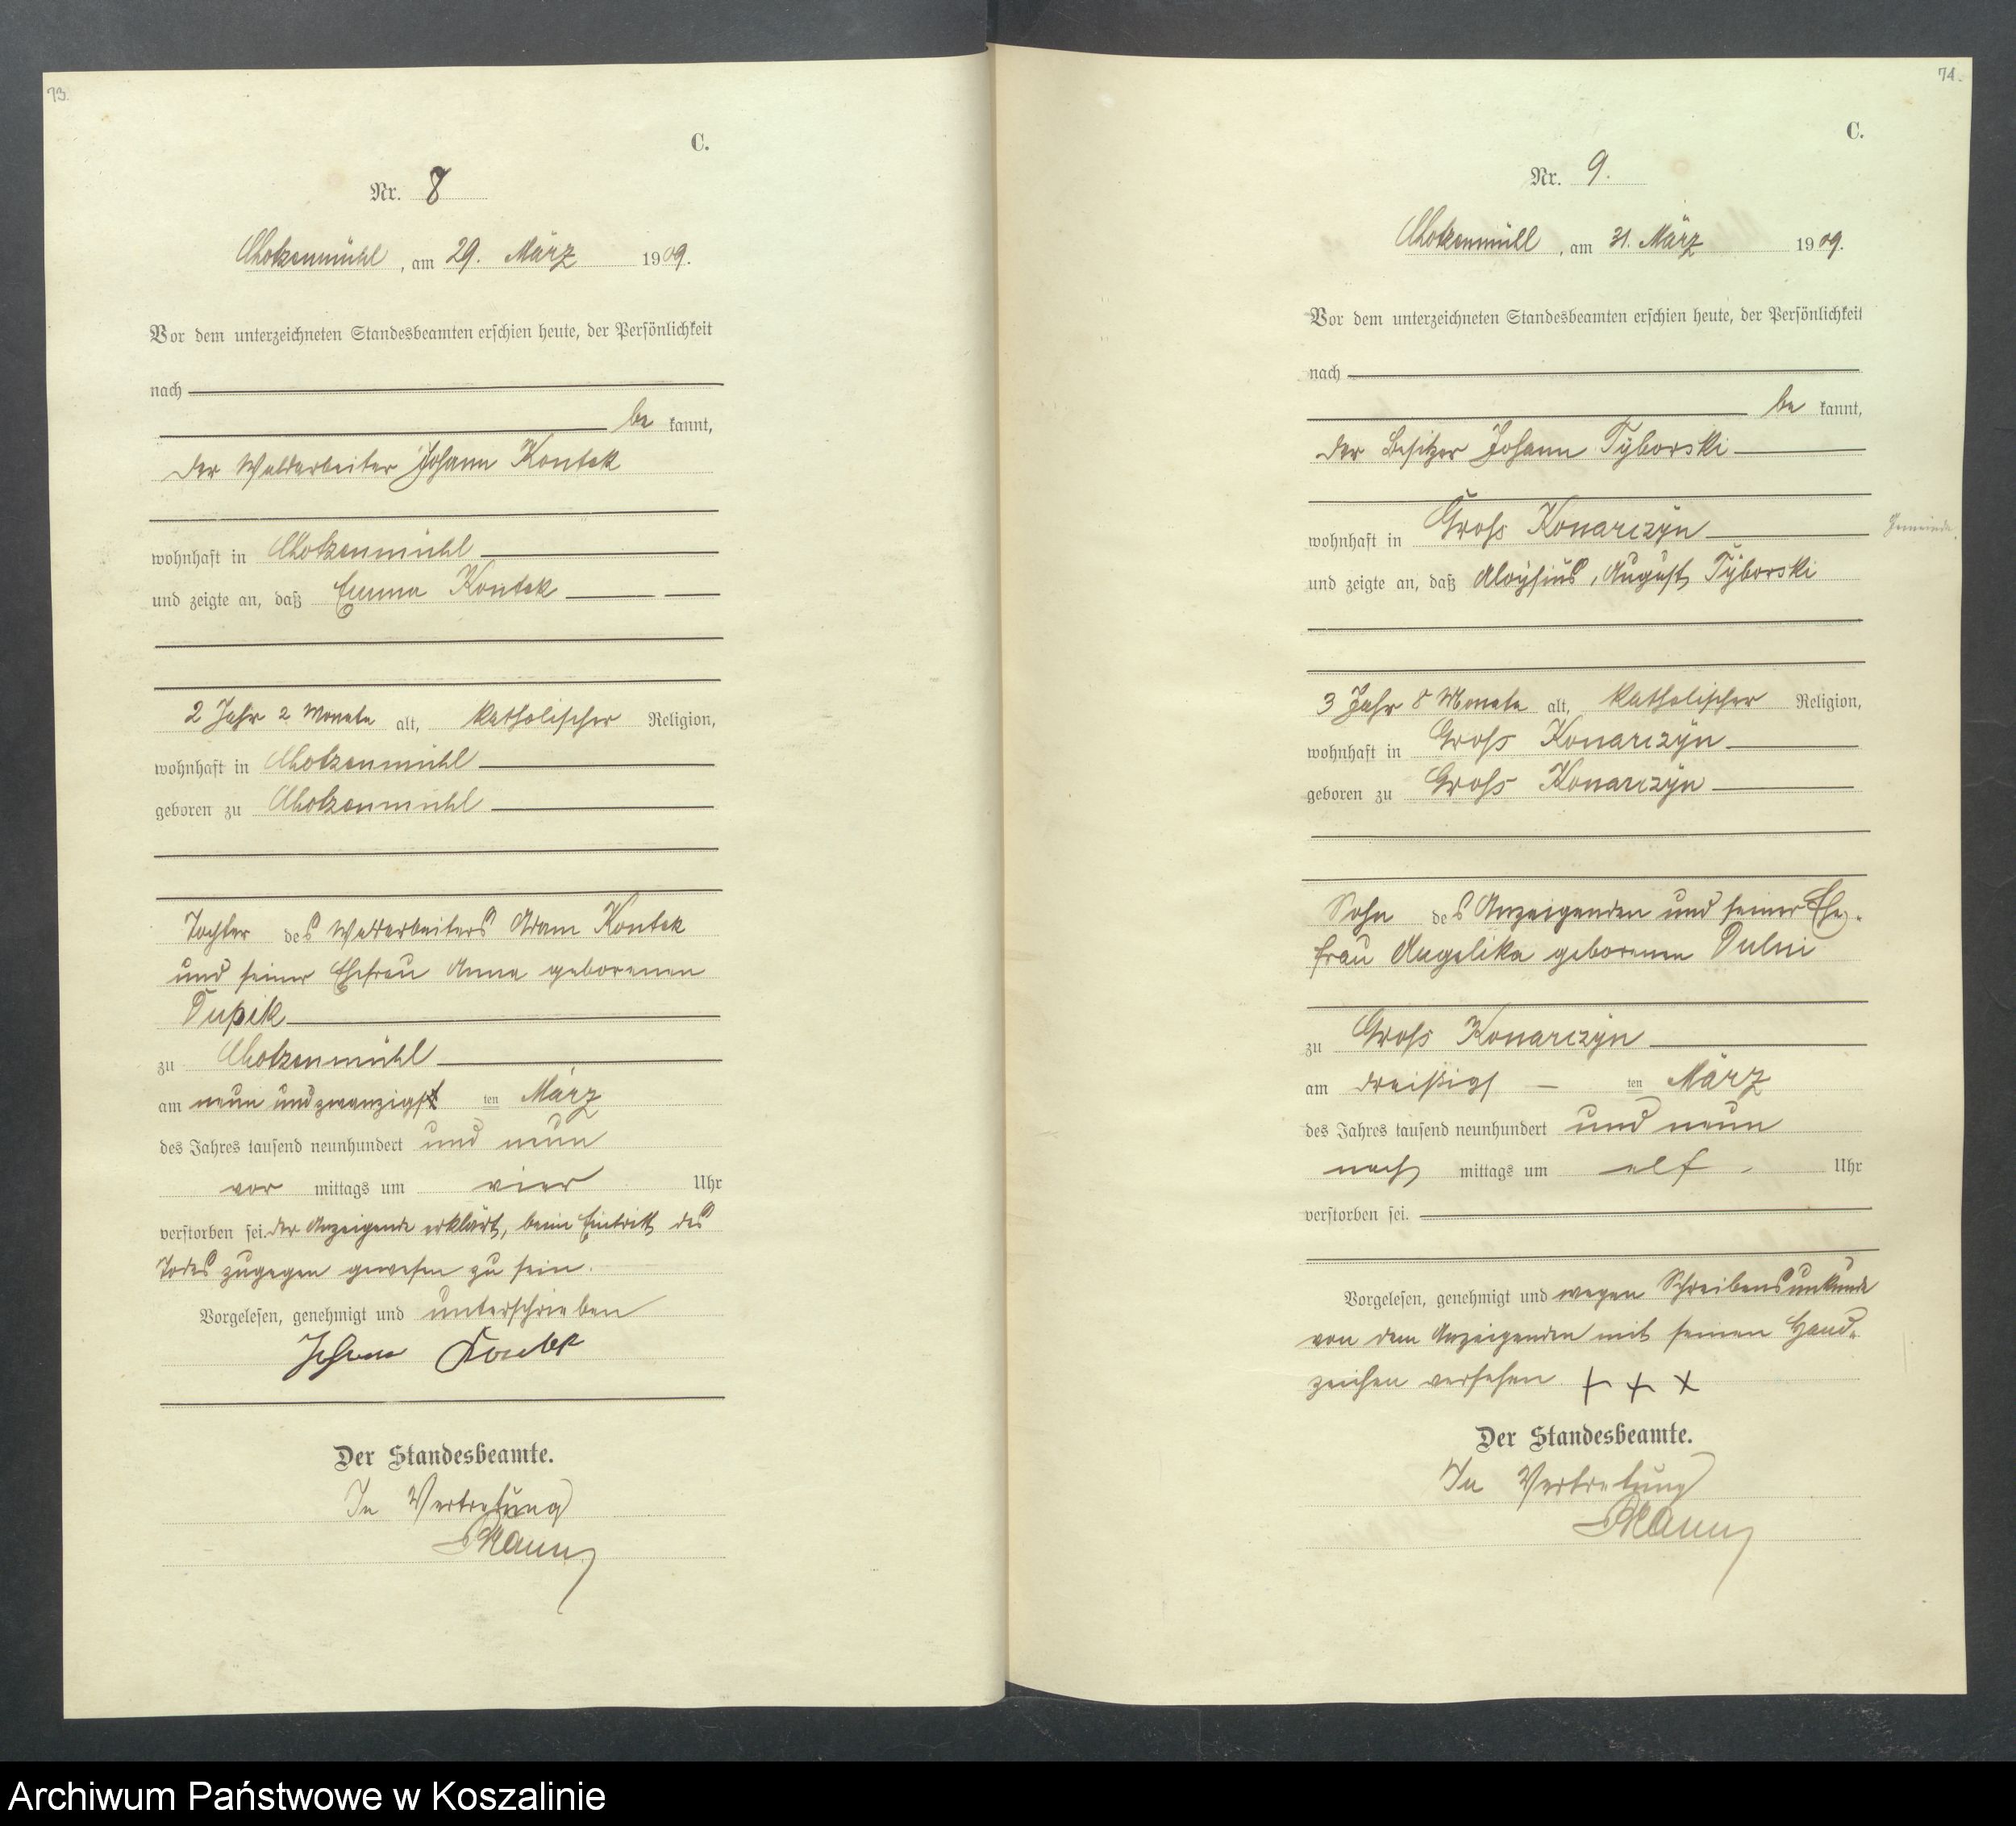 73.
C.
Nr. 8
Chotzenmühl, am 29. März 1909.
Vor dem unterzeichneten Standesbeamten erschien heute, der Persönlichkeit
nach
be kannt,
der Waldarbeiter Johann Kontek
wohnhaft in Chotzenmühl
und zeigte an, daß Emma Kontek
2 Jahr 2 Monate alt, katholischer Religion,
wohnhaft in Chotzenmühl
geboren zu Chotzenmühl
Tochter des Waldarbeiters Adam Kontek
und seiner Ehefrau Anna geborenen
zu Chotzenmühl
am neun und zwanzigst ten März
des Jahres tausend neunhundert und neun
vor mittags um vier Uhr
verstorben sei. Der Anzeigende erklärt, beim Eintritt des
Todes zugegen gewesen zu sein.
Vorgelesen, genehmigt und unterschrieben
Johann Kontek
Der Standesbeamte.
In Vertretung
74.
C.
Nr. 9.
Chotzenmühl, am 31. März 1909.
Vor dem unterzeichneten Standesbeamten erschien heute, der Persönlichkeit
nach
be kannt,
der Besitzer Johann Tÿborski
wohnhaft in Gross Konarczÿn
Gemeinde
und zeigte an, daß Aloÿsius, August Tÿborski
3 Jahr 8 Monate alt, katholischer Religion,
wohnhaft in Gross Konarczÿn
geboren zu Gross Konarczÿn
Sohn des Anzeigenden und seiner Ehe-
frau Angelika geborenen
zu Gross Konarczÿn
am dreißigst ten März
des Jahres tausend neunhundert und neun
nach mittags um elf Uhr
verstorben sei.
Vorgelesen, genehmigt und wegen Schreibensunkunde
von dem Anzeigenden mit seinem Hand-
zeichen versehen + + +
Der Standesbeamte.
In Vertretung
Archiwum Państwowe w Koszalinie